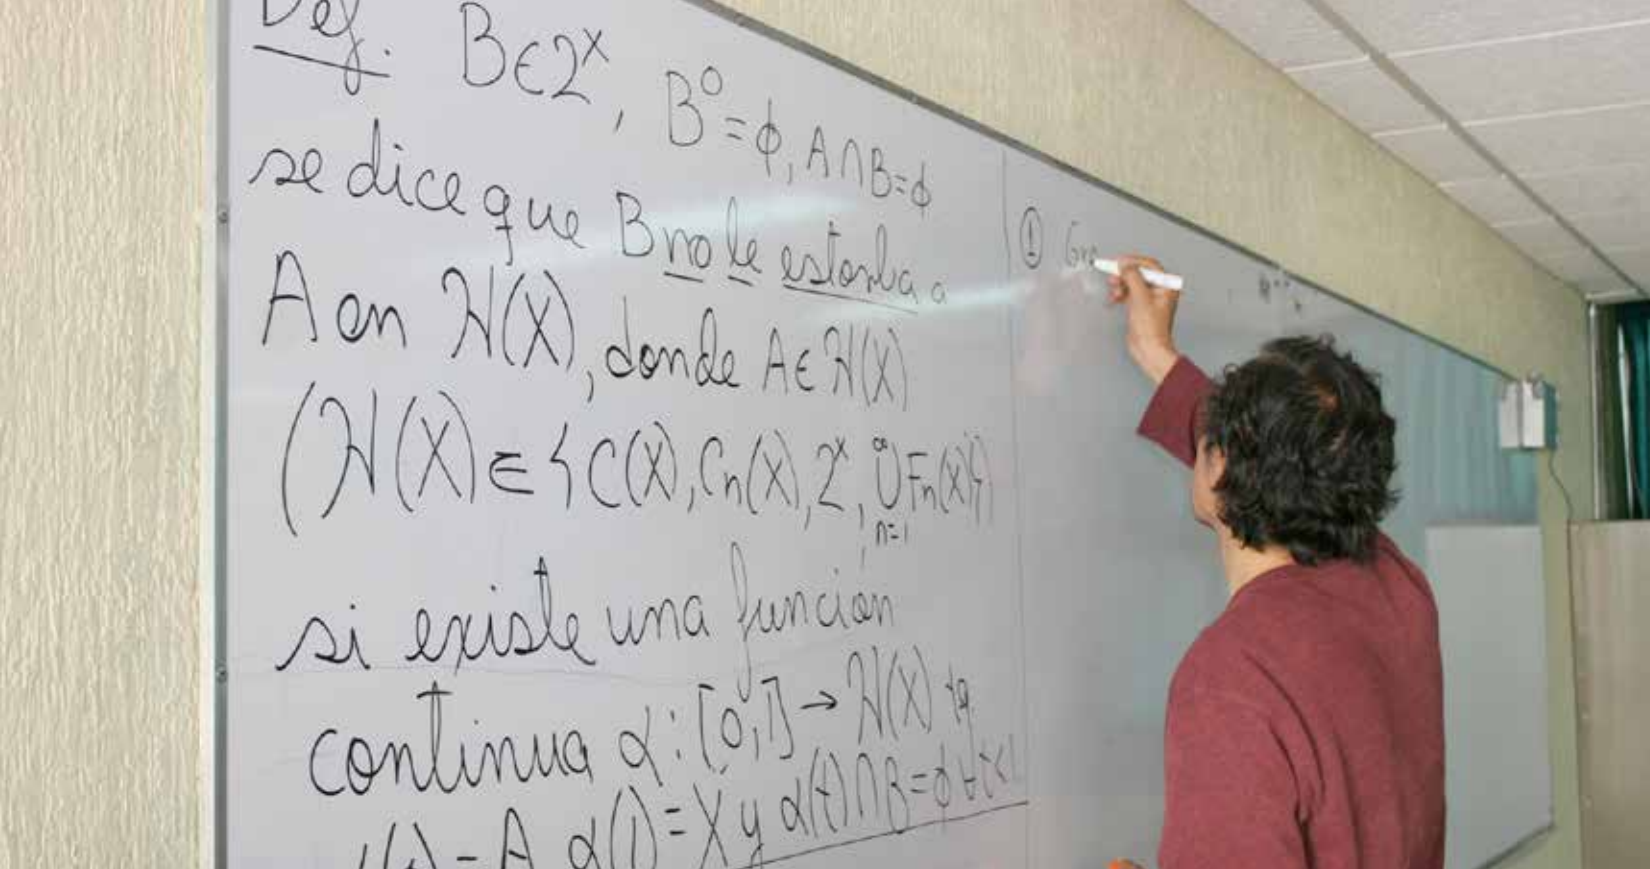 Def. B∈2ˣ, B⁰=ϕ, A∩B=ϕ
se dice que B no le estorba a
A en H(X), donde A∈H(X)
(H(X)∈{C(X), Cn(X), 2ˣ, ∞∪n=1 Fn(X)})
si existe una función
continua α:[0,1]→H(X) tq
α(0)=A α(1)=X y α(t)∩B=ϕ ∀t<1
①